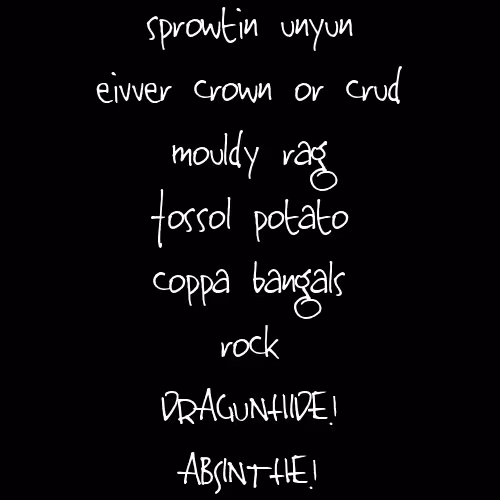 sprowtin unyun
eivver crown or crud
mouldy rag
fossol potato
coppa bangals
rock
DRAGUNHIDE!
ABSINTHE!